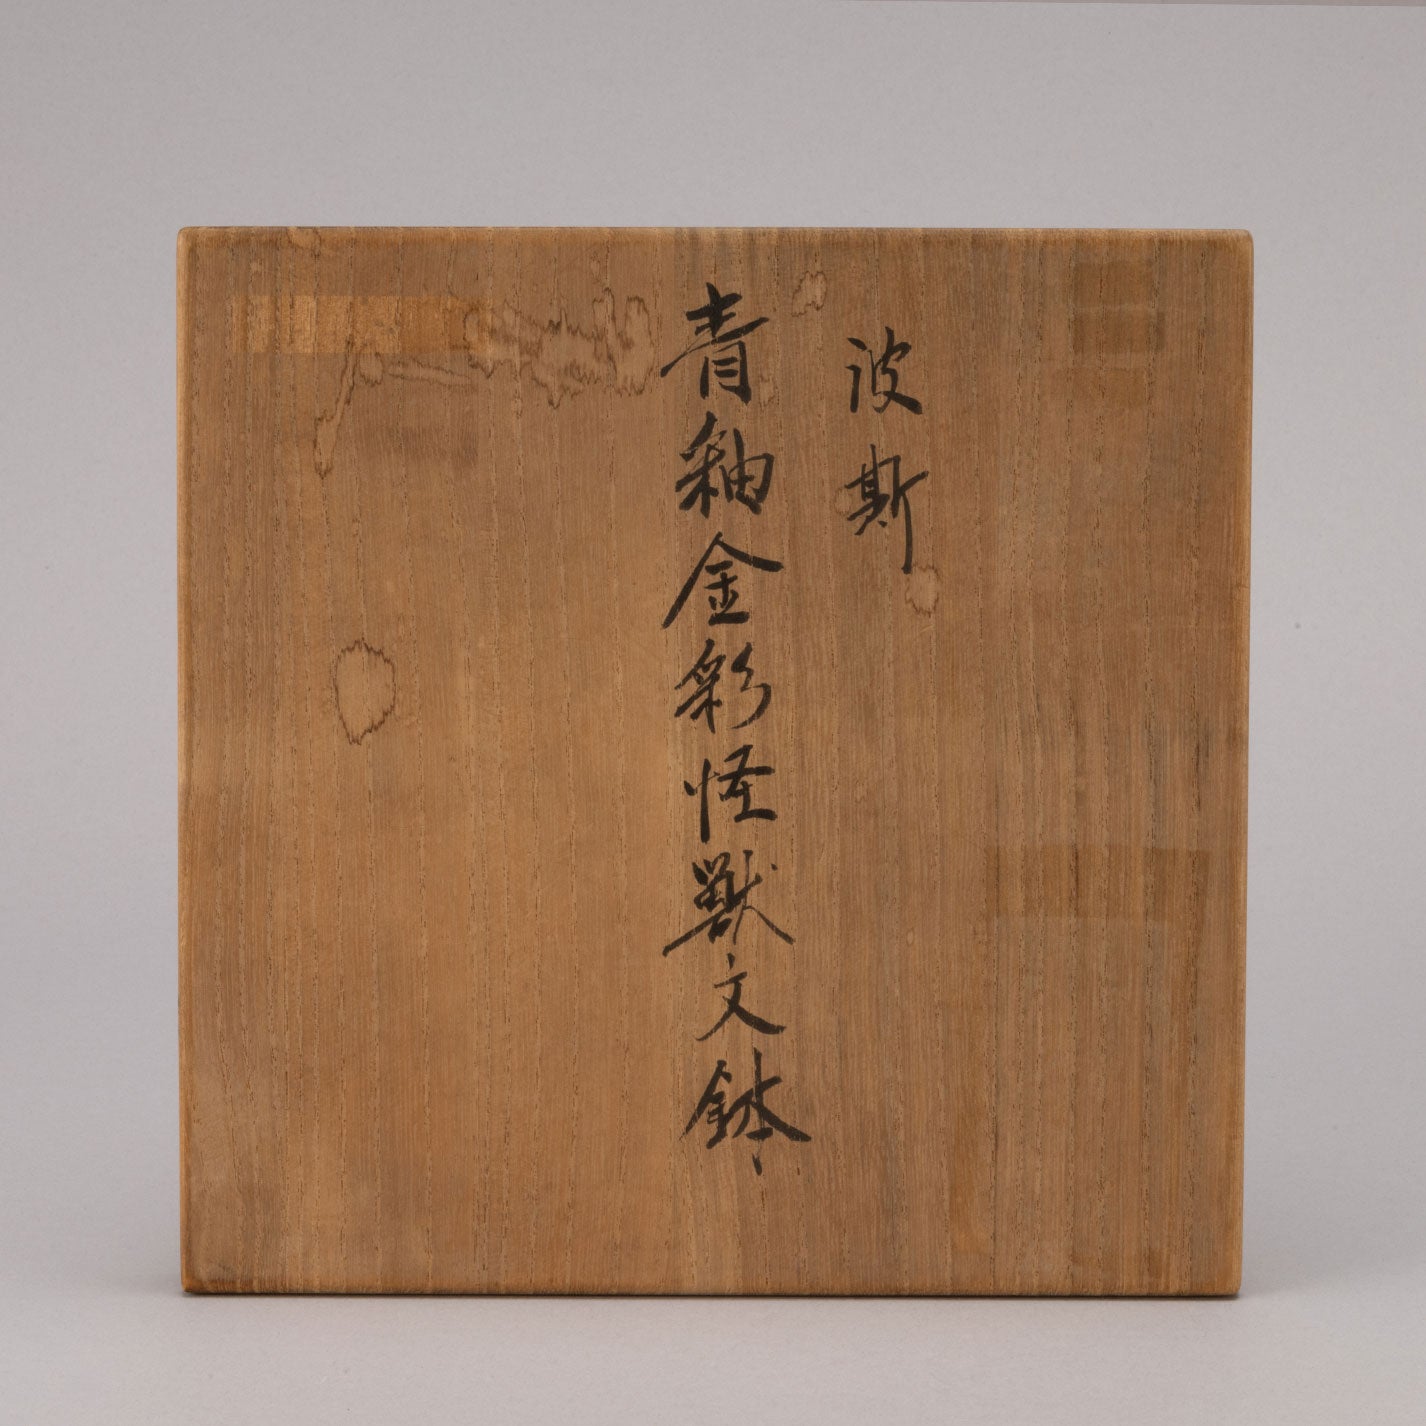 波斯
青釉金彩怪獣文鉢